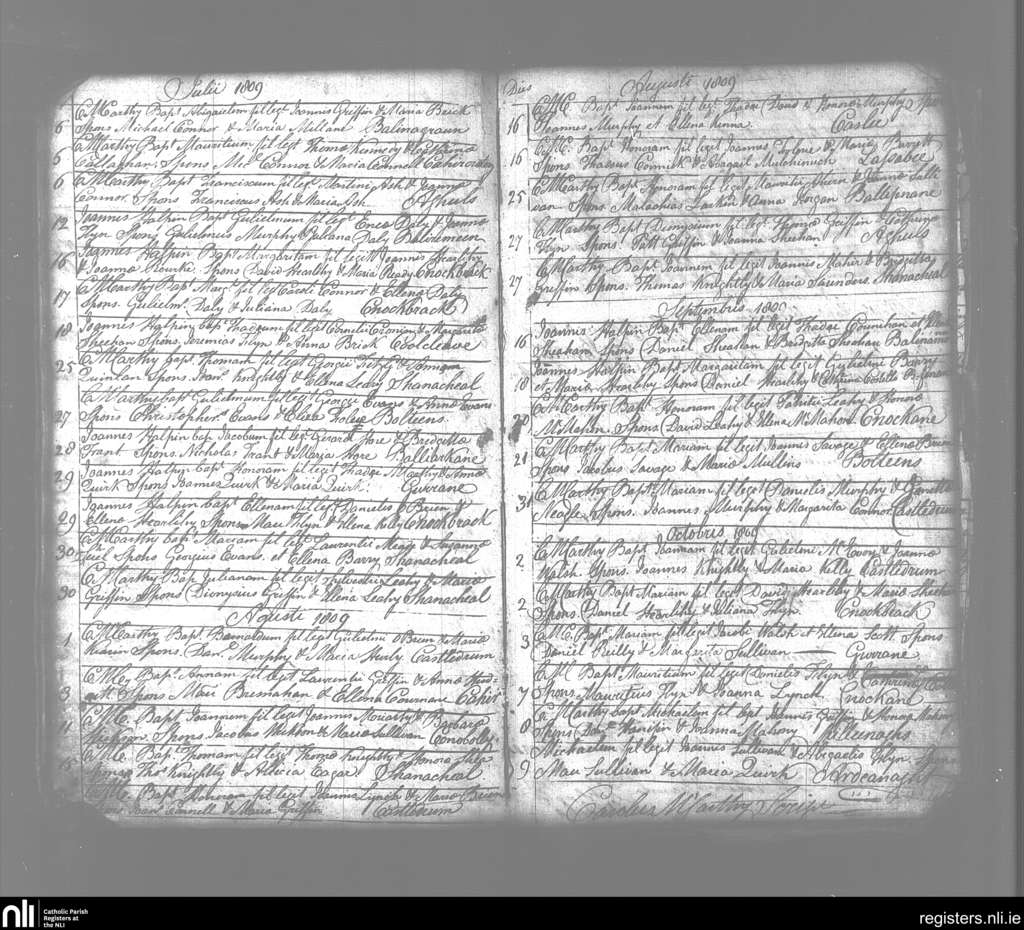 Julii 1809
CMcCarthy Bapt Abigaelem fil legt Joannis Griffin & Maria Brick
6 Spons Michael Connor & Maria Millane Balinagraun
CMcCarthy Bapt Mauritium fil legt Thoma Kennedy & Cathrina
6 Callaghan. Spons Mic Connor & Maria Connell
6 CMcCarthy Bapt Franciscum fil legt Martini Ash & Joanna
Connor. Spons Franciscus Ash & Maria Ash Aghuls
12 Joannes Halpin Bapt Gulielmum fil legt Enea Daly & Joanna
Flyn Spons Gulielmus Murphy & Juliana Daly
16 Joannes Halpin Bapt Margaritam fil legtt Joannis Hearlihy
& Joanna Rourke. Spons David Hearlihy & Maria Ready Cnockbrack
17 CMcCarthy Bapt Margt fil leg Caroli Connor & Ellena Daly
Spons. Gulielm. Daly & Juliana Daly Cnockbrack
18 Joannes Halpin bapt Thadeum fil legt Cornelii Cronian & Margarita
Sheehan Spons Jeremias Flyn & Anna Brick Coolcleave
25 CMcCarthy Bapt Thomam fil legt Georgii
Quinlan Spons Knightly & Ellena Leahy Shanacheal
CMcCarthy bapt Gulielmum fil legt George Evans & Anna Evans
27 Spons Christopher Evans & Eliza Foley Bolteens
28 Joannes Halpin bap Jacobum fil legt Gerard Hore & Bridgetta
Grant Spons Nicholas Grant & Maria Hore Balliarkane
29 Joannes Halpin bapt Honoram fil legt Thadge McCarthy & Anna
Quirk Spons Joannes Quirk & Maria Quirk. Gurrane
29 Joannes Halpin bapt Ellenam fil legt Danielis O Brien &
Ellena Hearlihy Spons Mau Flyn & Ellena Kelly Cnockbrack
30 CMcCarthy bapt Mariam fil legt Laurentii Meagh & Suzanna
Neil Spons Georgius Evans. et Ellena Barry Shanacheal
30 CMcCarthy Bap Julianam fil legt Sylvestris Leahy & Maria
Griffin Spons Dionysius Griffin & Ellena Leahy Shanacheal
Agusti 1809
1 CMcCarthy Bapt. Barnaldum fil legt Gulielmi O Brien & Maria
Kearin Spons. Dan. Murphy & Maria Hurly. Castledrum
3 CMC. Bapt Annam fil legt Laurentii Griffin & Anna
Spons Mau Bresnahan & Ellena Cournane Cahir
11 CMC. Bapt Joannem fil legt Joannes Moriarthy & Barbara
Hickson. Spons. Jacobus Hickson & Maria Sullivan
15 CMC. Bapt Thomam fil legt Thoma Knightly & Honora Flyn
Spons Thos Knightly & Alicia Eagar Shanacheal
CMC. Bapt Honoram fil legt Joannis Lynch & Maria Brien
& Maria Griffin Castledrum
Dies Augusti 1809
16 CMC. Bapt Joannem fil legt Thadge Doud & Honora Murphy Spons
Joannes Murphy et Ellena Kenna. Caslee
16 CMC. Bapt Honoram fil legt Joannes & Maria Barrett
Spons Thadeus Connick & Abigail Mutchinuch Lassabee
25 CMcCarthy Bapt Honoram fil legt Mauritii Ahern & Joanna Sulli
van Spons Malachias Larkin & Anna Horgan Ballynane
27 CMcCarthy Bapt Dionysium fil legt Thoma Griffin & Cathrina
Flyn Spons. Patt Griffin & Joanna Sheehan Aghuls
27 CMcCarthy Bapt Joannem fil legt Joannis Mahir & Brigitta
Griffin Spons. Thomas Knightly & Maria Saunders Shanacheal
Septembris 1809
16 Joannes Halpin Bapt Ellenam fil legt Thadge Counihan et
Sheehan Spons Daniel Sheehan & Bridgitta Sheehan
18 Joannes Halpin Bapt Margaritam fil legt Gulielmi Barry
et Maria Hearlihy Spons Daniel Hearlihy & Cathrina Costillo
20 CMcCarthy Bapt Honoram fil legt Patritii Leahy & Honora
McMahon. Spons David Leahy & Ellena McMahon Cnockane
21 CMcCarthy Bapt Miriam fil legt Joannis Savage & Ellena Brien
Spons Jacobus Savage & Maria Mullins Bolteens
31 CMcCarthy Bapt Mariam fil legt Danielis Murphy &
Neagle. Spons. Joannes Murphy & Margarita Connor. Castledrum
Octobris 1809
2 CMcCarthy Bapt Joannam fil legt Gulielmi McEvoy & Joanna
Walsh. Spons. Joannes Knightly & Maria Kelly Castledrum
2 CMcCarthy Bapt Mariam fil legt David Hearlihy & Maria Sheehan
Spons. Daniel Hearlihy & Juliana Flyn. Cnockbrack
3 CMC. Bapt Mariam fil legt Jacobi Walsh et Ellena Scott. Spons
Daniel Reilly & Margarita Sullivan — Gurrane
7 CMC Bapt Mauritium fil legt Danielis Flyn &
Spons Mauritius Flyn & Joanna Lynch. Cnockane
8 CMcCarthy bapt Michaelem fil legt Joannis Griffin & Honora Mahony
Spons Dan Hanifin & Joanna Mahony Killeenaghs
9 Michaelem fil legt Joannis Sullivan & Abigaelis Flyn. Spons
Mau Sullivan & Maria Quirk Ardcanaght
Carolus McCarthy Scrips
nli Catholic Parish
Registers at
the NLI
registers.nli.ie